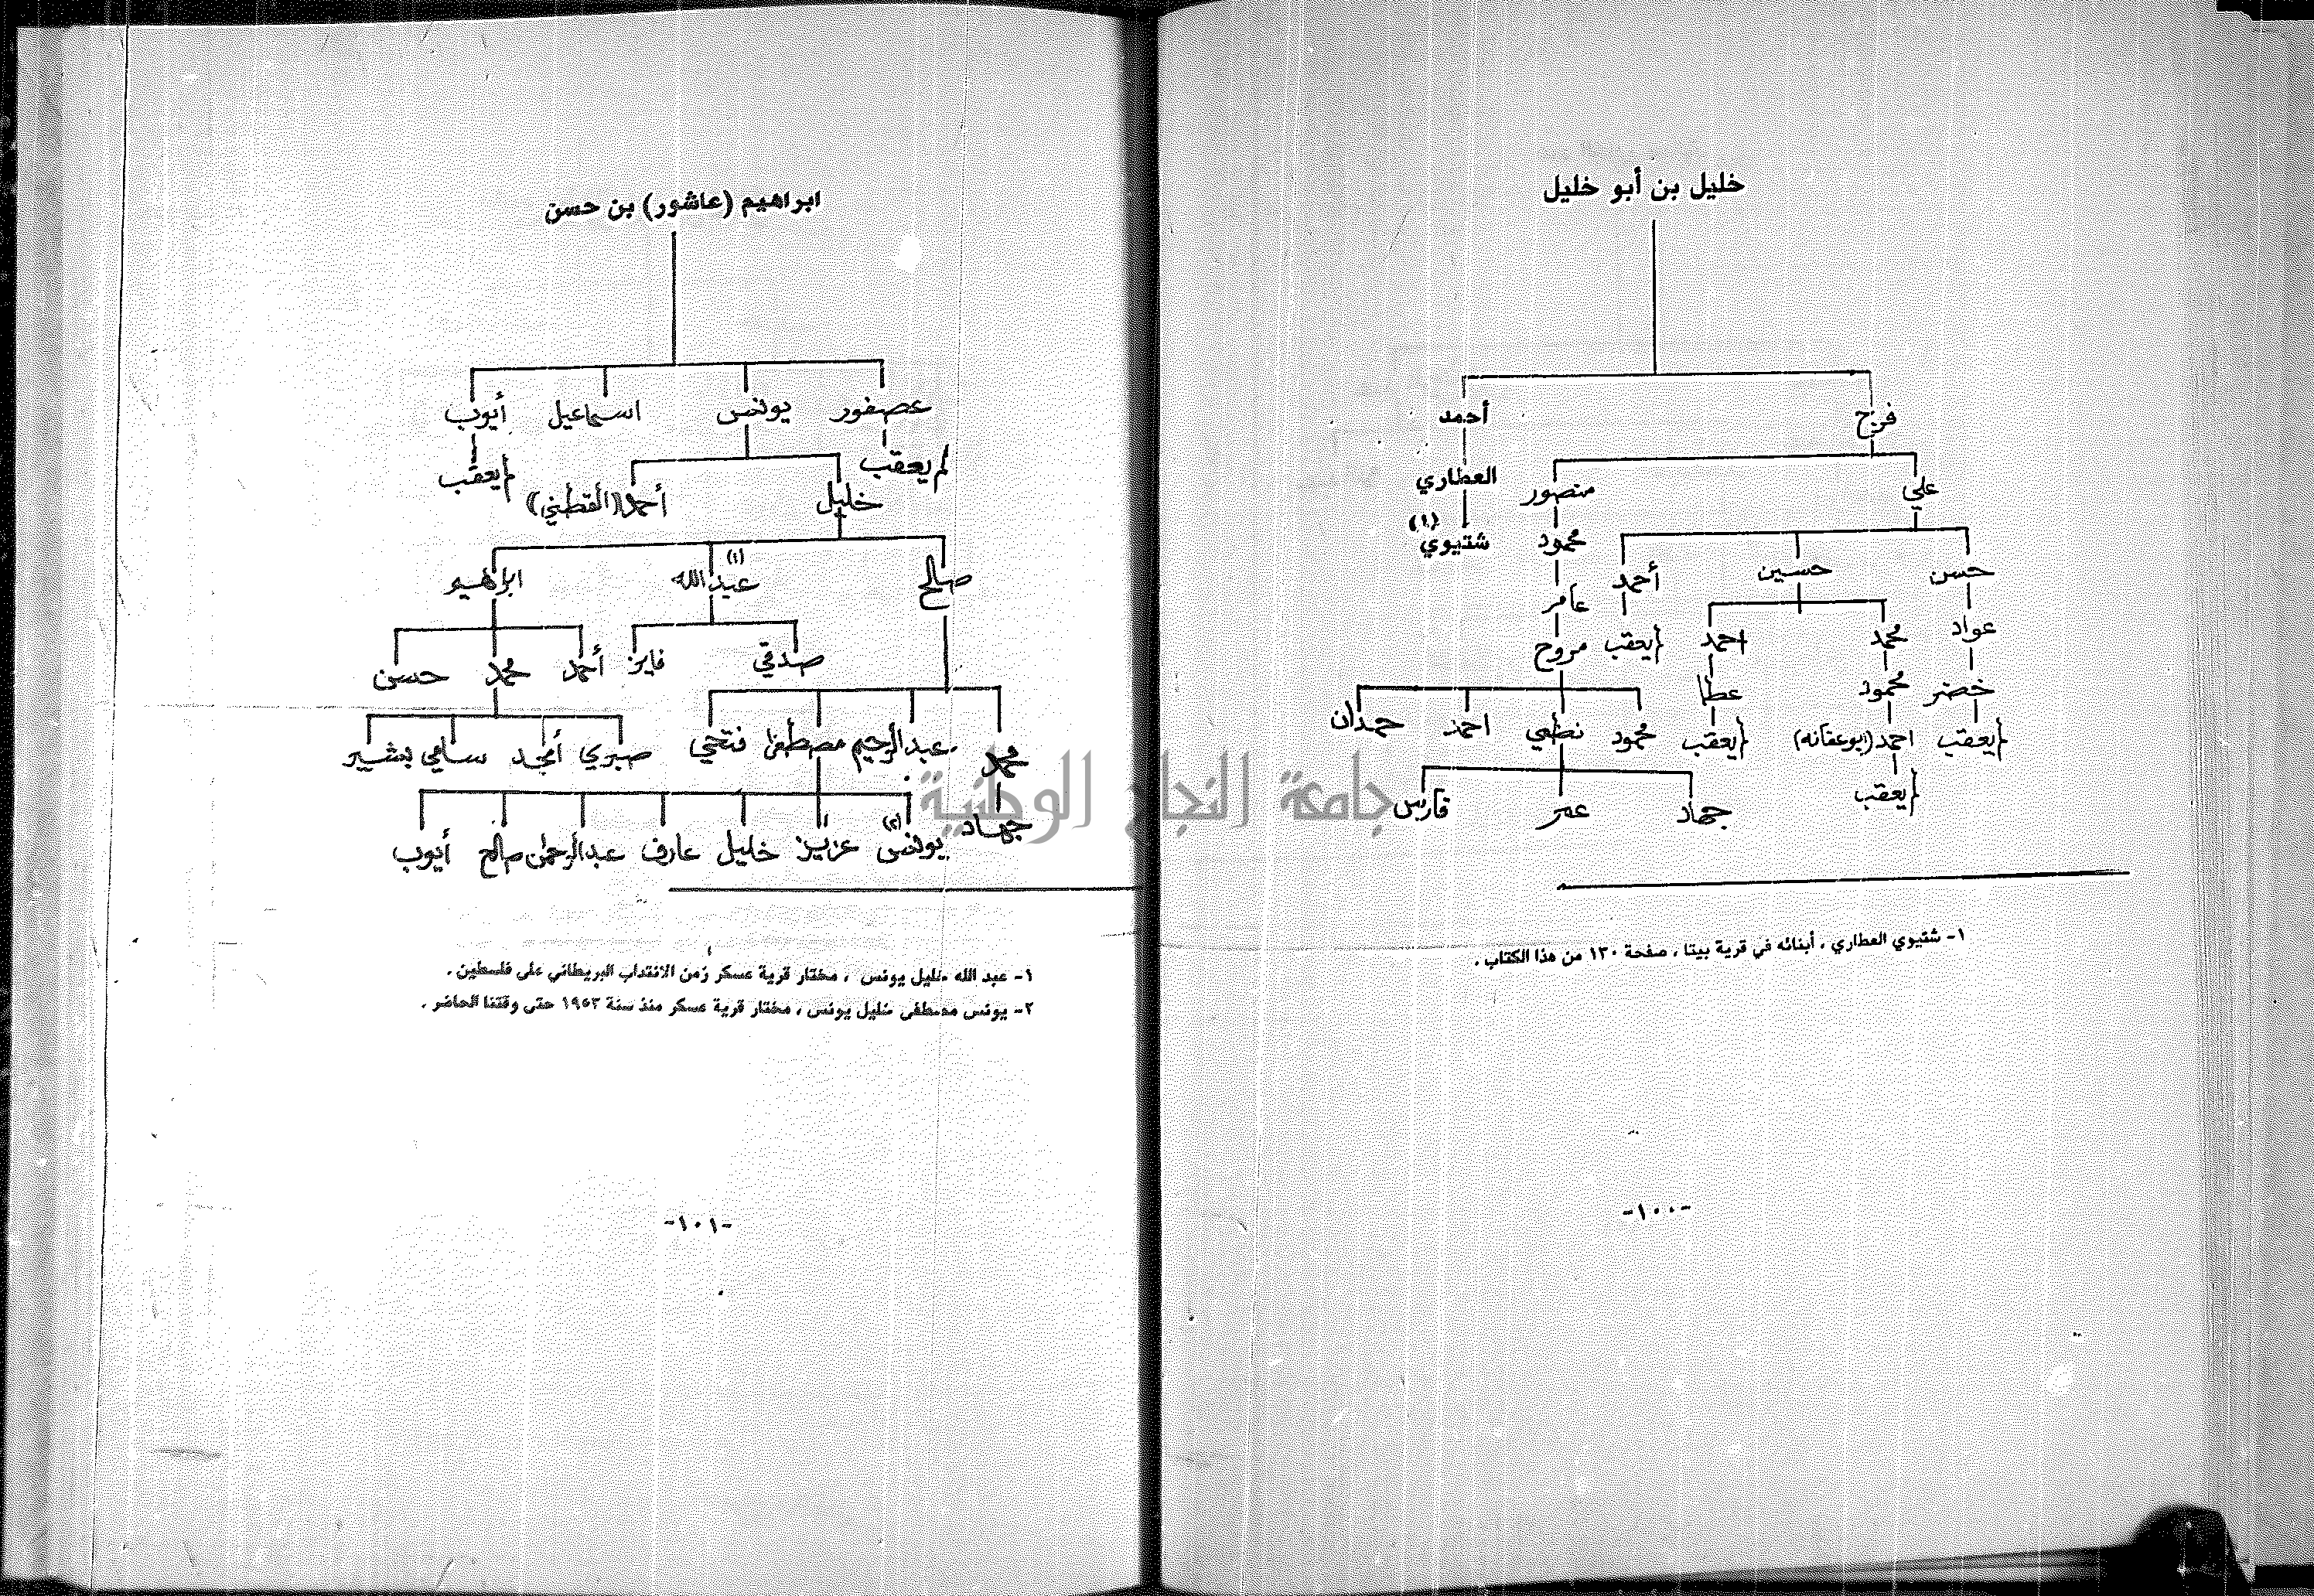 خليل بن أبو خليل
فرج أحمد
علي منصور العطاري
حسن حسين أحمد محمود شتيوي (١)
عواد محمد احمد لم يعقب عامر
خضر محمود عطا مروح
لم يعقب احمد (ابوعفانه) لم يعقب محمود نظمي احمد حمدان
لم يعقب جهاد عمر فارس
١- شتيوي العطاري ، أبنائه في قرية بيتا ، صفحة ١٣٠ من هذا الكتاب .
-١٠٠-
ابراهيم (عاشور) بن حسن
عصفور يونس اسماعيل أيوب
لم يعقب خليل أحمد (القطني) لم يعقب
صالح عبد الله (١) ابراهيم
صدقي فايز أحمد محمد حسن
محمد عبد الرحيم مصطفى فتحي صبري أمجد سامي بشير
جهاد يونس (٢) عزيز خليل عارف عبد الرحمن صالح أيوب
١- عبد الله خليل يونس ، مختار قرية عسكر زمن الانتداب البريطاني على فلسطين .
٢- يونس مصطفى خليل يونس ، مختار قرية عسكر منذ سنة ١٩٥٣ حتى وقتنا الحاضر .
-١٠١-
جامعة النجاح الوطنية